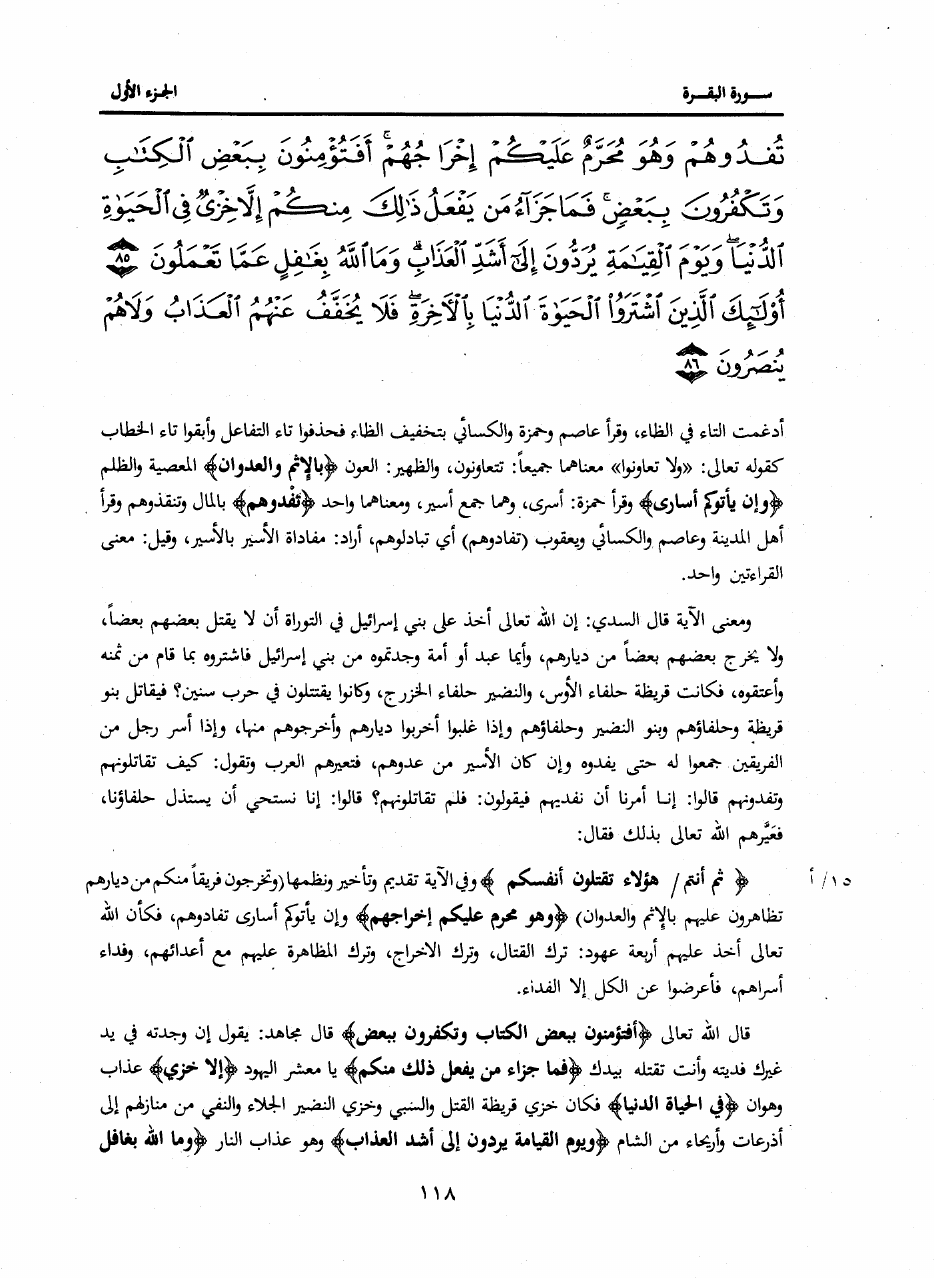 سورة البقرة الجزء الأول
تُفَدُوهُمْ وَهُوَ مُحَرَّمٌ عَلَيْكُمْ إِخْرَاجُهُمْ ۚ أَفَتُؤْمِنُونَ بِبَعْضِ ٱلْكِتَٰبِ
وَتَكْفُرُونَ بِبَعْضٍ ۚ فَمَا جَزَآءُ مَن يَفْعَلُ ذَٰلِكَ مِنكُمْ إِلَّا خِزْىٌ فِى ٱلْحَيَوٰةِ
ٱلدُّنْيَا ۖ وَيَوْمَ ٱلْقِيَٰمَةِ يُرَدُّونَ إِلَىٰٓ أَشَدِّ ٱلْعَذَابِ ۗ وَمَا ٱللَّهُ بِغَٰفِلٍ عَمَّا تَعْمَلُونَ ٨٥
أُو۟لَٰٓئِكَ ٱلَّذِينَ ٱشْتَرَوُا۟ ٱلْحَيَوٰةَ ٱلدُّنْيَا بِٱلْأَخِرَةِ ۖ فَلَا يُخَفَّفُ عَنْهُمُ ٱلْعَذَابُ وَلَا هُمْ
يُنصَرُونَ ٨٦
أدغمت التاء في الظاء، وقرأ عاصم وحمزة والكسائي بتخفيف الظاء فحذفوا تاء التفاعل وأبقوا تاء الخطاب
كقوله تعالى: «ولا تعاونوا» معناهما جميعاً: تتعاونون، والظهير: العون ﴿بالإثم والعدوان﴾ المعصية والظلم
﴿وإن يأتوكم أسارى﴾ وقرأ حمزة: أسرى، وهما جمع أسير، ومعناهما واحد ﴿تَفْدوهم﴾ بالمال وتنقذوهم وقرأ
أهل المدينة وعاصم والكسائي ويعقوب (تفادوهم) أي تبادلوهم، أراد: مفاداة الأسير بالأسير، وقيل: معنى
القراءتين واحد.
ومعنى الآية قال السدي: إن الله تعالى أخذ على بني إسرائيل في التوراة أن لا يقتل بعضهم بعضاً،
ولا يخرج بعضهم بعضاً من ديارهم، وأيما عبد أو أمة وجدتموه من بني إسرائيل فاشتروه بما قام من ثمنه
وأعتقوه، فكانت قريظة حلفاء الأوس، والنضير حلفاء الخزرج، وكانوا يقتتلون في حرب سنين؟ فيقاتل بنو
قريظة وحلفاؤهم وبنو النضير وحلفاؤهم وإذا غلبوا أخربوا ديارهم وأخرجوهم منها، وإذا أسر رجل من
الفريقين جمعوا له حتى يفدوه وإن كان الأسير من عدوهم، فتعيرهم العرب وتقول: كيف تقاتلونهم
وتفدونهم قالوا: إنا أمرنا أن نفديهم فيقولون: فلم تقاتلونهم؟ قالوا: إنا نستحي أن يستذل حلفاؤنا،
فعَيَّرهم الله تعالى بذلك فقال:
١٥/أ ﴿ثم أنتم / هؤلاء تقتلون أنفسكم﴾ وفي الآية تقديم وتأخير ونظمها (وتخرجون فريقاً منكم من ديارهم
تظاهرون عليهم بالإثم والعدوان) ﴿وهو محرم عليكم إخراجهم﴾ وإن يأتوكم أسارى تفادوهم، فكأن الله
تعالى أخذ عليهم أربعة عهود: ترك القتال، وترك الاخراج، وترك المظاهرة عليهم مع أعدائهم، وفداء
أسراهم، فأعرضوا عن الكل إلا الفداء.
قال الله تعالى ﴿أفتؤمنون ببعض الكتاب وتكفرون ببعض﴾ قال مجاهد: يقول إن وجدته في يد
غيرك فديته وأنت تقتله بيدك ﴿فما جزاء من يفعل ذلك منكم﴾ يا معشر اليهود ﴿إلا خزي﴾ عذاب
وهوان ﴿في الحياة الدنيا﴾ فكان خزي قريظة القتل والسبي وخزي النضير الجلاء والنفي من منازلهم إلى
أذرعات وأريحاء من الشام ﴿ويوم القيامة يردون إلى أشد العذاب﴾ وهو عذاب النار ﴿وما الله بغافل
١١٨